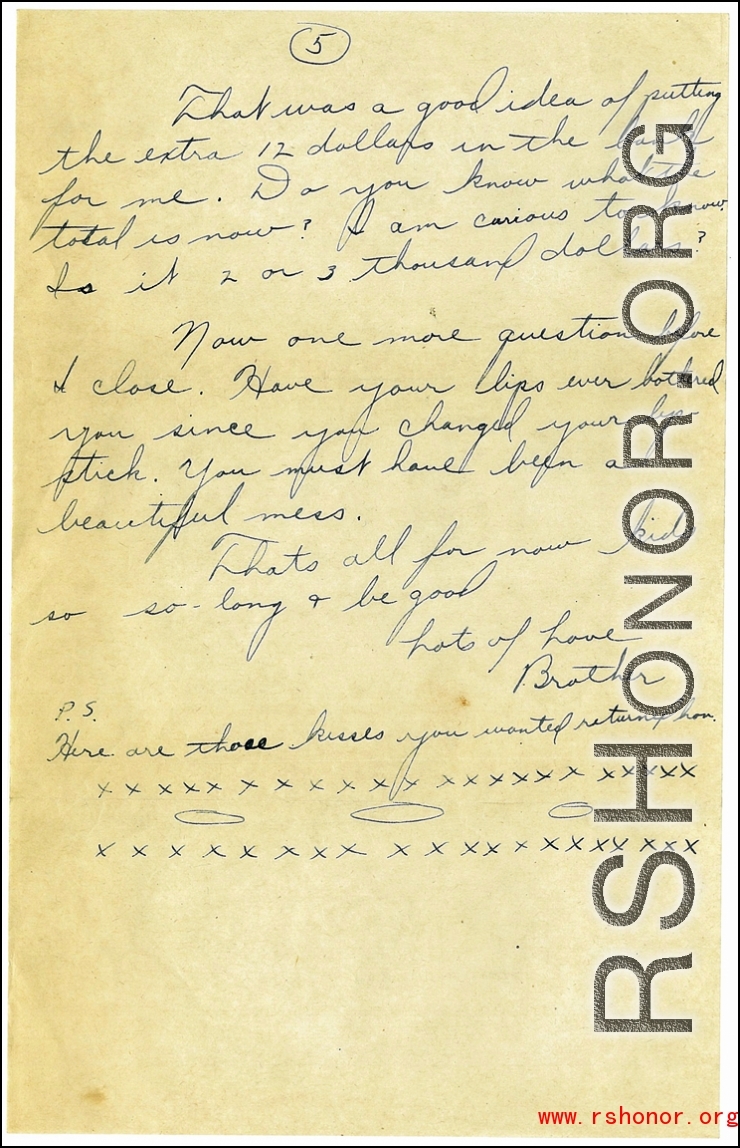 5
That was a good idea of putting
the extra 12 dollars in the bank
for me. Do you know what the
total is now? I am curious to know.
Is it 2 or 3 thousand dollars?
Now one more question before
I close. Have your lips ever bothered
you since you changed your lip-
stick. You must have been a
beautiful mess.
Thats all for now kid
so so-long & be good
Lots of Love
Brother
P.S.
Here are those kisses you wanted returned hon.
x x x x x x x x x x x x x x x x x x x x x x x x
x x x x x x x x x x x x x x x x x x x x x x
RSHONOR.ORG
www.rshonor.org